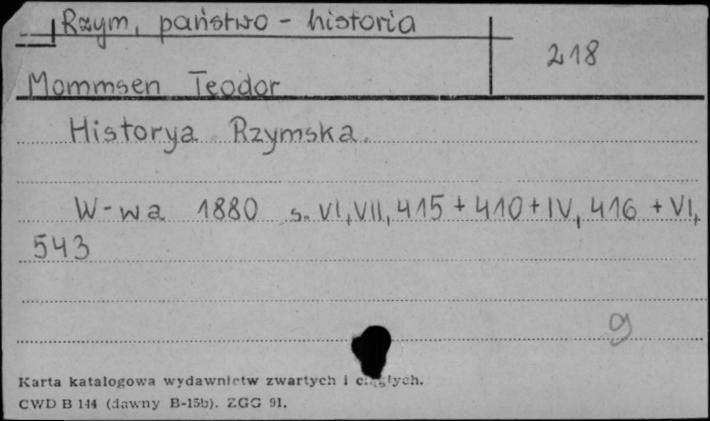 Rzym, państwo - historia
218
Mommsen Teodor
Historya Rzymska.
W-wa 1880 s. VI, VII, 415 + 410 + IV, 416 + VI,
543
g
Karta katalogowa wydawnictw zwartych i ciągłych.
CWD B 144 (dawny B-15b). ZGG 91.